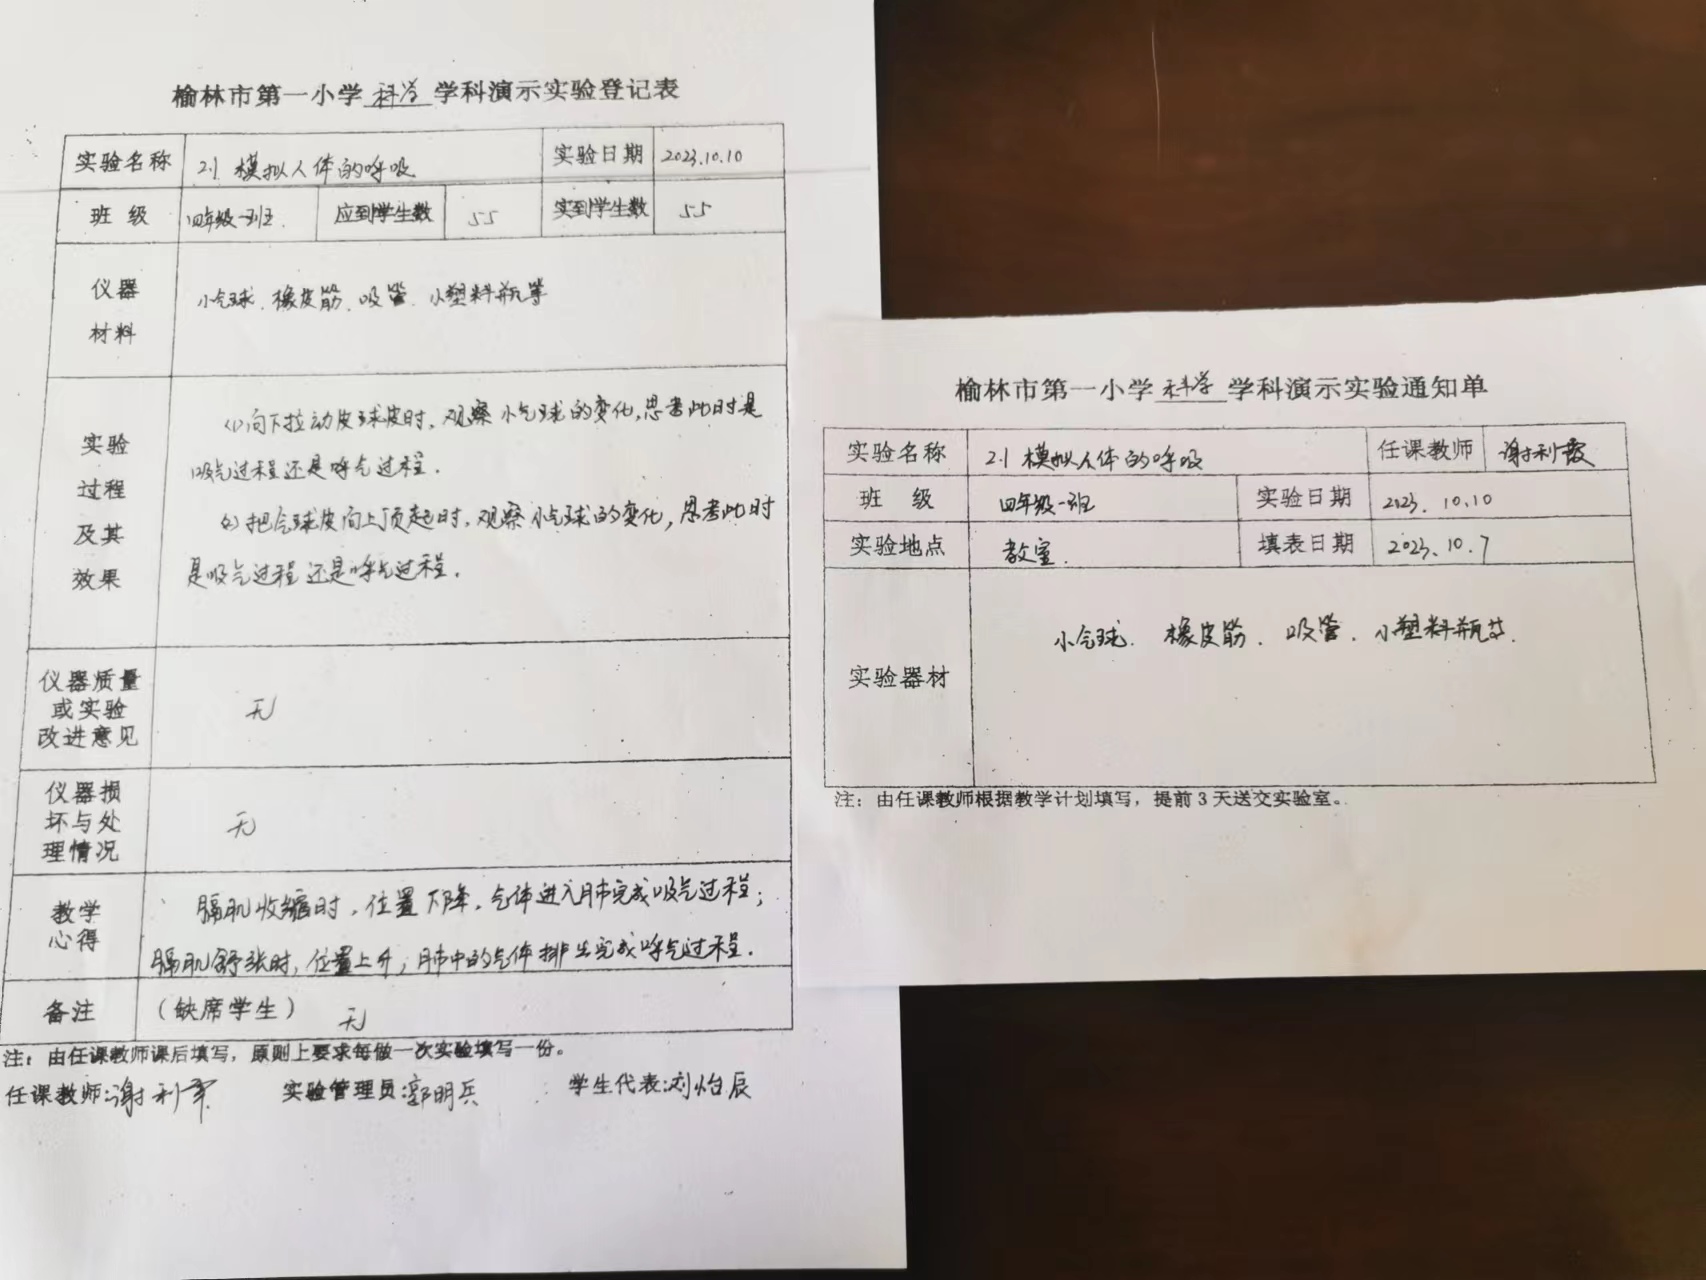 榆林市第一小学 科学 学科演示实验登记表
实验名称 2.1 模拟人体的呼吸 实验日期 2023.10.10
班 级 四年级一班. 应到学生数 55 实到学生数 55
仪器
材料
小气球、橡皮筋、吸管、小塑料瓶等
实验
过程
及其
效果
(1)向下拉动皮球皮时,观察小气球的变化,思考此时是
吸气过程还是呼气过程.
(2)把气球皮向上顶起时,观察小气球的变化,思考此时
是吸气过程还是呼气过程.
仪器质量
或实验
改进意见
无
仪器损
坏与处
理情况
无
教学
心得
膈肌收缩时,位置下降,气体进入肺完成吸气过程;
膈肌舒张时,位置上升,肺中的气体排出完成呼气过程.
备注 (缺席学生) 无
注:由任课教师课后填写,原则上要求每做一次实验填写一份。
任课教师:谢利霞 实验管理员:郭明兵 学生代表:刘怡辰
榆林市第一小学 科学 学科演示实验通知单
实验名称 2.1 模拟人体的呼吸 任课教师 谢利霞
班 级 四年级一班 实验日期 2023.10.10
实验地点 教室. 填表日期 2023.10.7
实验器材 小气球. 橡皮筋. 吸管. 小塑料瓶等.
注:由任课教师根据教学计划填写,提前3天送交实验室。